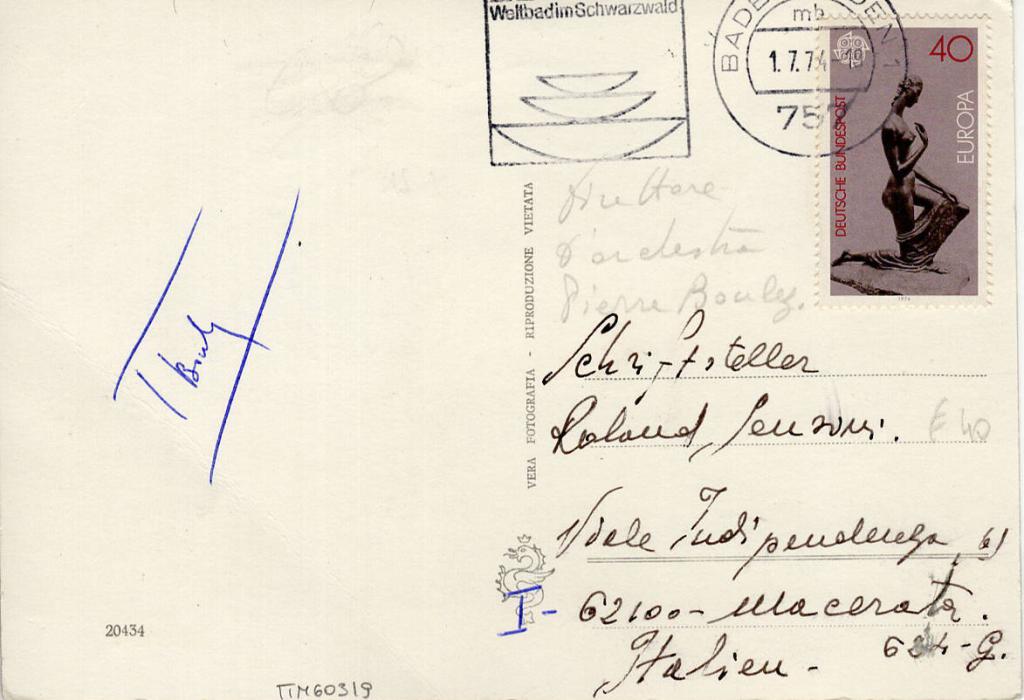 Weltbad im Schwarzwald
BADEN-BADEN 1
mb
1.7.74-10
757
40
DEUTSCHE BUNDESPOST
EUROPA
1974
Direttore
D'orchestra
Pierre Boulez.
VERA FOTOGRAFIA - RIPRODUZIONE VIETATA
Schriftsteller
Roland Sensoni.
€ 40
Viale Indipendenza, 61
62100 - Macerata.
I-
Italien -
624-G.
20434
TIM60319